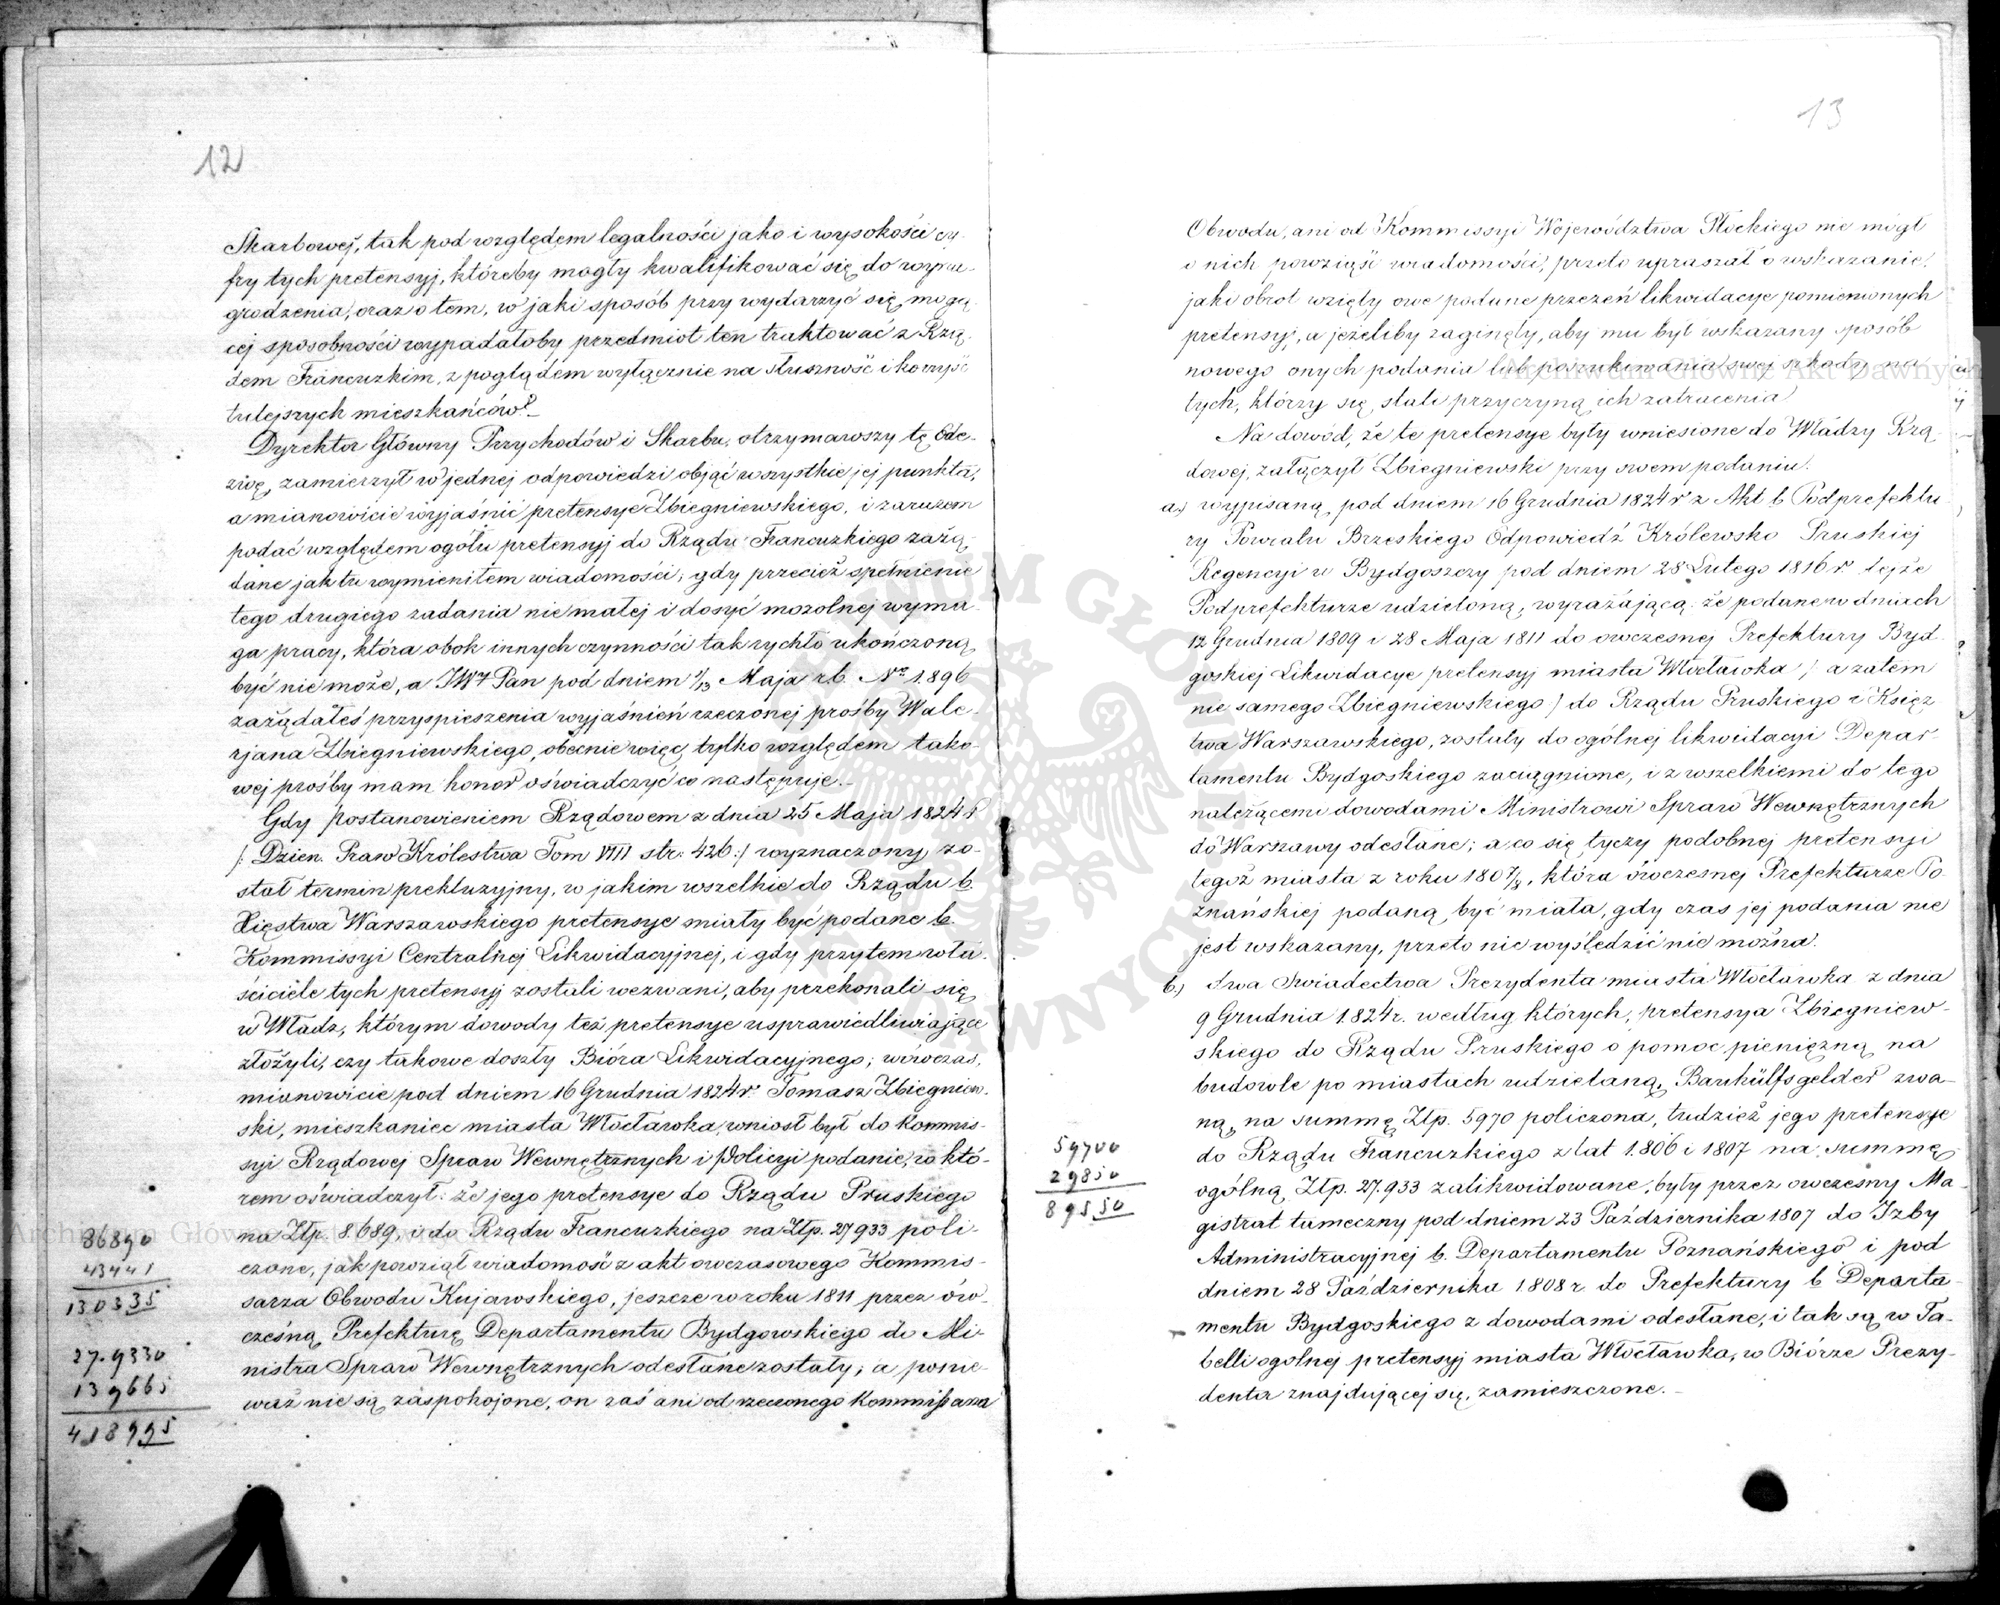 12
Skarbowej, tak pod względem legalności jako i wysokości cy-
fry tych pretensyj, któreby mogły kwalifikować się do wyna-
grodzenia, oraz o tem, w jaki sposób przy wydarzyć się mogą-
cej sposobności wypadałoby przedmiot ten traktować z Rzą-
dem Francuzkim, z poglądem wyłącznie na słuszność i korzyść
tutejszych mieszkańców?_
Dyrektor Główny Przychodów i Skarbu, otrzymawszy tę Ode-
zwę, zamierzył w jednej odpowiedzi objąć wszystkie jej punkta,
a mianowicie wyjaśnić pretensye Zbiegniewskiego, i zarazem
podać względem ogółu pretensyj do Rządu Francuzkiego zażą-
dane jak tu wymieniłem wiadomości; gdy przecież spełnienie
tego drugiego zadania nie małej i dosyć mozolnej wyma-
ga pracy, która obok innych czynności tak rychło ukończoną
być nie może, a JWy Pan pod dniem 1/13 Maja r.b. Nro 1.896
zażądałeś przyspieszenia wyjaśnień rzeczonej prośby Wale-
rjana Zbiegniewskiego, obecnie więc tylko względem tako-
wej prośby mam honor oświadczyć co następuje._
Gdy postanowieniem Rządowem z dnia 25 Maja 1824 r
/: Dzien. Praw Królestwa Tom VIII str: 426:/ wyznaczony zo-
stał termin prekluzyjny, w jakim wszelkie do Rządu b.
Xięstwa Warszawskiego pretensye miały być podane b.
Kommissyi Centralnej Likwidacyjnej, i gdy przytem wła-
ściciele tych pretensyj zostali wezwani, aby przekonali się
u Władz, którym dowody też pretensye usprawiedliwiające
złożyli, czy takowe doszły Bióra Likwidacyjnego; wówczas,
mianowicie pod dniem 16 Grudnia 1824 r. Tomasz Zbiegniew-
ski, mieszkaniec miasta Włocławka, wniosł był do Kommis-
syi Rządowej Spraw Wewnętrznych i Policyi podanie, w któ-
rem oświadczył: że jego pretensye do Rządu Pruskiego
na Złp. 8.689, i do Rządu Francuzkiego na Złp. 27933 poli-
czone, jak powziął wiadomość z akt owczasowego Kommis-
sarza Obwodu Kujawskiego, jeszcze w roku 1811 przez ów-
czesną Prefekturę Departamentu Bydgowskiego do Mi-
nistra Spraw Wewnętrznych odesłane zostały; a ponie-
waż nie są zaspokojone, on zaś ani od rzeczonego Kommissarza
86890
43441
130335
27.9330
139665
418995
13
Obwodu, ani od Kommissyi Województwa Płockiego nie mógł
o nich powziąść wiadomości, przeto upraszał o wskazanie,
jaki obrot wzięły owe podane przezeń likwidacye pomienionych
pretensyj, a jeżeliby zaginęły, aby mu był wskazany sposób
nowego onych podania lub poszukiwania swej szkody na
tych, którzy się stali przyczyną ich zatracenia.
Na dowód, że te pretensye były wniesione do Władzy Rzą-
dowej, załączył Zbiegniewski przy swem podaniu:
a) wypisaną pod dniem 16 Grudnia 1824 r z Akt b. Podprefektu-
ry Powiatu Brzeskiego Odpowiedź Królewsko Pruskiej
Regencyi w Bydgoszczy pod dniem 28 Lutego 1816 r. tejże
Podprefekturze udzieloną, wyrażającą: że podane w dniach
12 Grudnia 1809 i 28 Maja 1811 do owczesnej Prefektury Byd-
goskiej Likwidacye pretensyj miasta Włocławka / a zatem
nie samego Zbiegniewskiego / do Rządu Pruskiego i Księz
twa Warszawskiego, zostały do ogólnej likwidacyi Depar-
tamentu Bydgoskiego zaciągnione, i z wszelkiemi do tego
należącemi dowodami Ministrowi Spraw Wewnętrznych
do Warszawy odesłane; a co się tyczy podobnej pretensyi
tegoż miasta z roku 1807/8, która ówczesnej Prefekturze Po-
znańskiej podaną być miała, gdy czas jej podania nie
jest wskazany, przeto nic wyśledzić nie można.
b.) dwa Swiadectwa Prezydenta miasta Włocławka z dnia
9 Grudnia 1.824 r. według których, pretensya Zbiegniew-
skiego do Rządu Pruskiego o pomoc pieniężną na
budowle po miastach udzielaną, Bauhülfsgelder zwa-
ną, na summę Złp. 5970 policzona, tudzież jego pretensye
do Rządu Francuzkiego z lat 1.806 i 1807 na summę
ogólną Złp. 27.933 zalikwidowane, były przez owczesny Ma-
gistrat tameczny pod dniem 23 Października 1807 do Izby
Administracyjnej b. Departamentu Poznańskiego i pod
dniem 28 Października 1.808 r. do Prefektury b Departa-
mentu Bydgoskiego z dowodami odesłane, i tak są w Ta-
belli ogolnej pretensyj miasta Włocławka, w Biórze Prezy-
denta znajdującej się, zamieszczone._
59700
29850
89550
Archiwum Główne Akt Dawnych